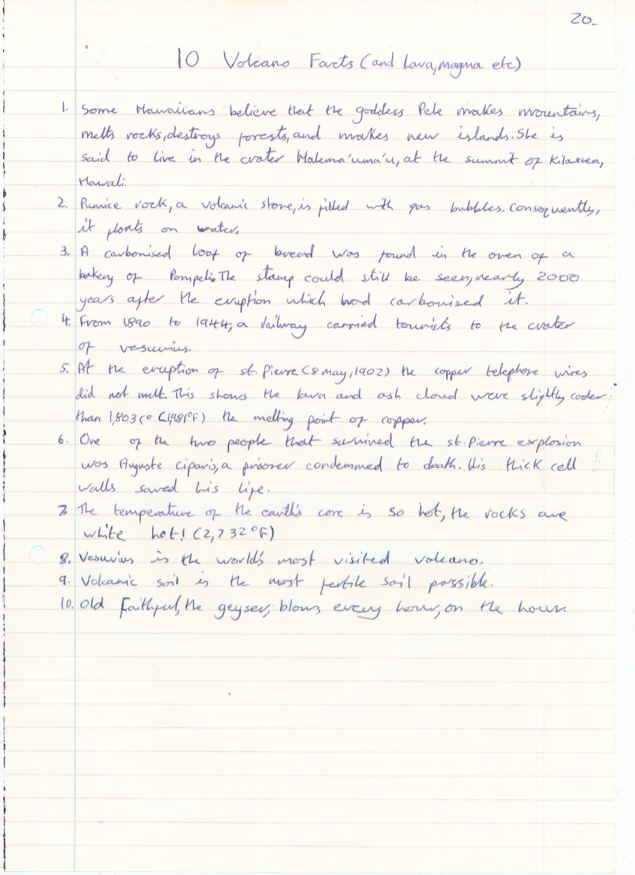 20.
10 Volcano Facts (and lava, magma etc)
1. Some Hawaiians believe that the goddess Pele makes mountains,
melts rocks, destroys forests, and makes new islands. She is
said to live in the crater Halema'uma'u, at the summit of Kilauea,
Hawaii.
2. Pumice rock, a volcanic stone, is filled with gas bubbles. Consequently,
it floats on water.
3. A carbonised loaf of bread was found in the oven of a
bakery of Pompeii. The stamp could still be seen, nearly 2000
years after the eruption which had carbonised it.
4. From 1890 to 1944, a railway carried tourists to the crater
of vesuvius.
5. At the eruption of st. Pierre (8 may, 1902) the copper telephone wires
did not melt. This shows the lava and ash cloud were slightly cooler
than 1,803 (° the melting point of copper.
6. One of the two people that survived the st Pierre explosion
was Auguste Ciparis, a prisoner condemmed to death. His thick cell
walls saved his life.
7. The temperature of the earth's core is so hot, the rocks are
white hot! (2,732°F)
8. Vesuvius is the world's most visited volcano.
9. Volcanic soil is the most fertile soil possible.
10. Old Faithful, the geyser, blows every hour, on the hour.